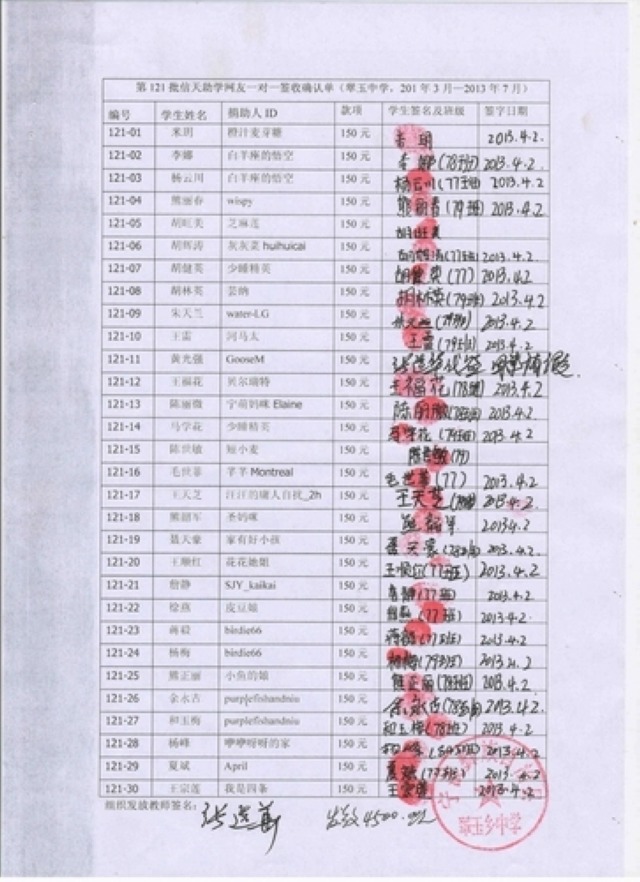 第121批信天助学网友一对一签收确认单（翠玉中学，201 年3月—2013年7月）
编号 学生姓名 捐助人ID 款项 学生签名及班级 签字日期
121-01 米玥 橙汁麦芽糖 150元 2013.4.2.
121-02 李娜 白羊座的悟空 150元 李娜(78班) 2013.4.2.
121-03 杨云川 白羊座的悟空 150元 杨云川(77班) 2013.4.2
121-04 熊丽春 wispy 150元 熊丽春(79班) 2013.4.2
121-05 胡旺美 芝麻莲 150元 胡旺美
121-06 胡辉涛 灰灰菜huihuicai 150元 (77班) 2013.4.2
121-07 胡健英 少睡精英 150元 胡健英(77) 2013.4.2
121-08 胡林英 芸纳 150元 胡林英(79班) 2013.4.2
121-09 朱天兰 water-LG 150元 2013.4.2
121-10 王雷 河马太 150元 王雷(79班) 2013.4.2.
121-11 黄光强 GooseM 150元
121-12 王福花 贝尔瑞特 150元 王福花(78班) 2013.4.2
121-13 陈丽微 宁萌妈咪Elaine 150元 2013.4.2.
121-14 马学花 少睡精英 150元 马学花(79班) 2013.4.2
121-15 陈世敏 短小麦 150元 陈世敏(79)
121-16 毛世菲 羊羊Montreal 150元 毛世菲(77) 2013.4.2
121-17 王天芝 汪汪的庸人自扰_2h 150元 王天芝 2013.4.2
121-18 熊韶军 圣妈咪 150元 熊韶军 2013.4.2
121-19 聂天豪 家有好小孩 150元 聂天豪(78班) 2013.4.2.
121-20 王顺红 花花她姐 150元 王顺红(77班) 2013.4.2
121-21 詹静 SJY_kaikai 150元 (77班) 2013.4.2.
121-22 徐燕 皮豆娘 150元 (77班) 2013.4.2
121-23 蒋毅 birdie66 150元 蒋毅(77班) 2013.4.2
121-24 杨梅 birdie66 150元 杨梅(79班) 2013.4.2
121-25 熊正丽 小鱼的娘 150元 熊正丽(78班) 2013.4.2.
121-26 余永古 purplefishandniu 150元 余永古(78班) 2013.4.2
121-27 和玉梅 purplefishandniu 150元 和玉梅(78班) 2013.4.2
121-28 杨峰 咿咿呀呀的家 150元 2013.4.2
121-29 夏斌 April 150元 夏斌(77班) 2013.4.2
121-30 王宗莲 我是四条 150元 王宗莲 2013.4.2
组织发放教师签名： 发放4500.元
翠玉乡中学